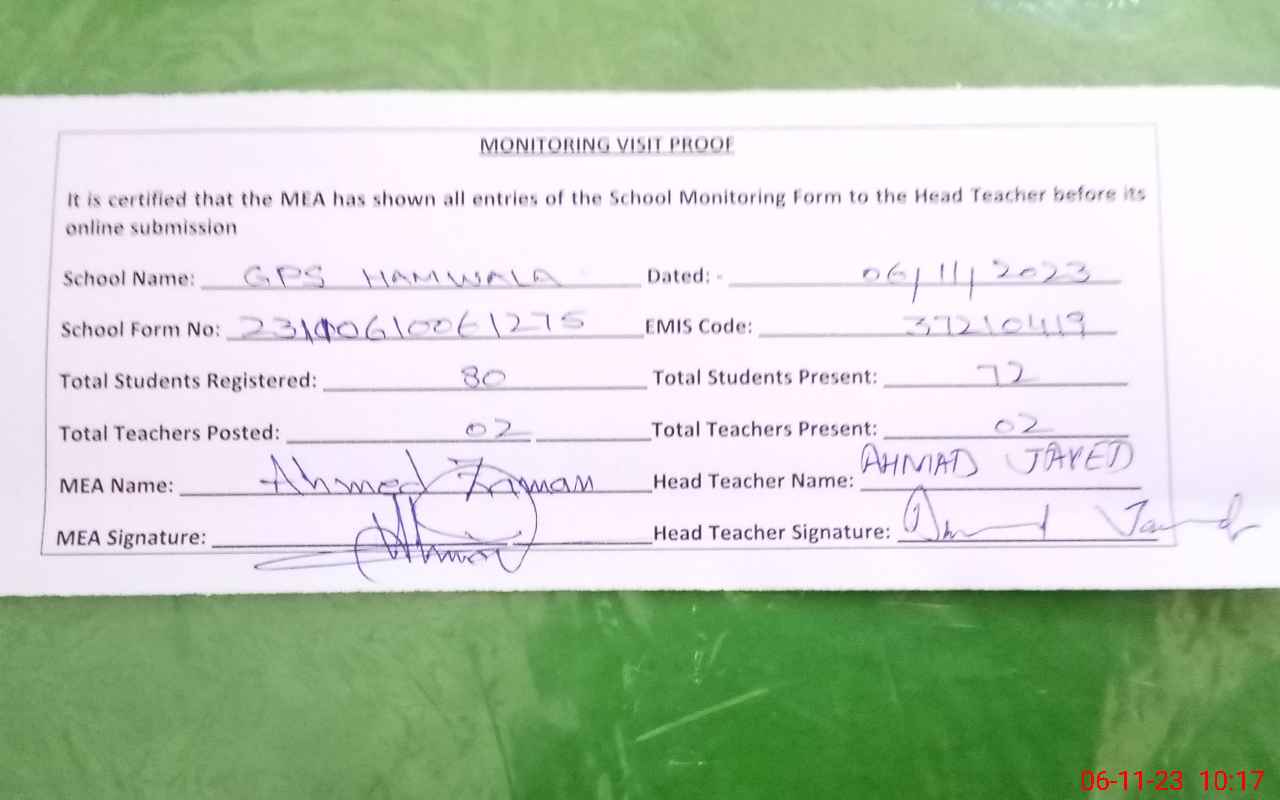 MONITORING VISIT PROOF
It is certified that the MEA has shown all entries of the School Monitoring Form to the Head Teacher before its
online submission
School Name: GPS HAMWALA Dated: - 06/11/2023
School Form No: EMIS Code: 37210419
Total Students Registered: 80 Total Students Present: 72
Total Teachers Posted: 02 Total Teachers Present: 02
MEA Name: Ahmed Zaman Head Teacher Name: AHMAD JAVED
MEA Signature: Head Teacher Signature:
06-11-23 10:17